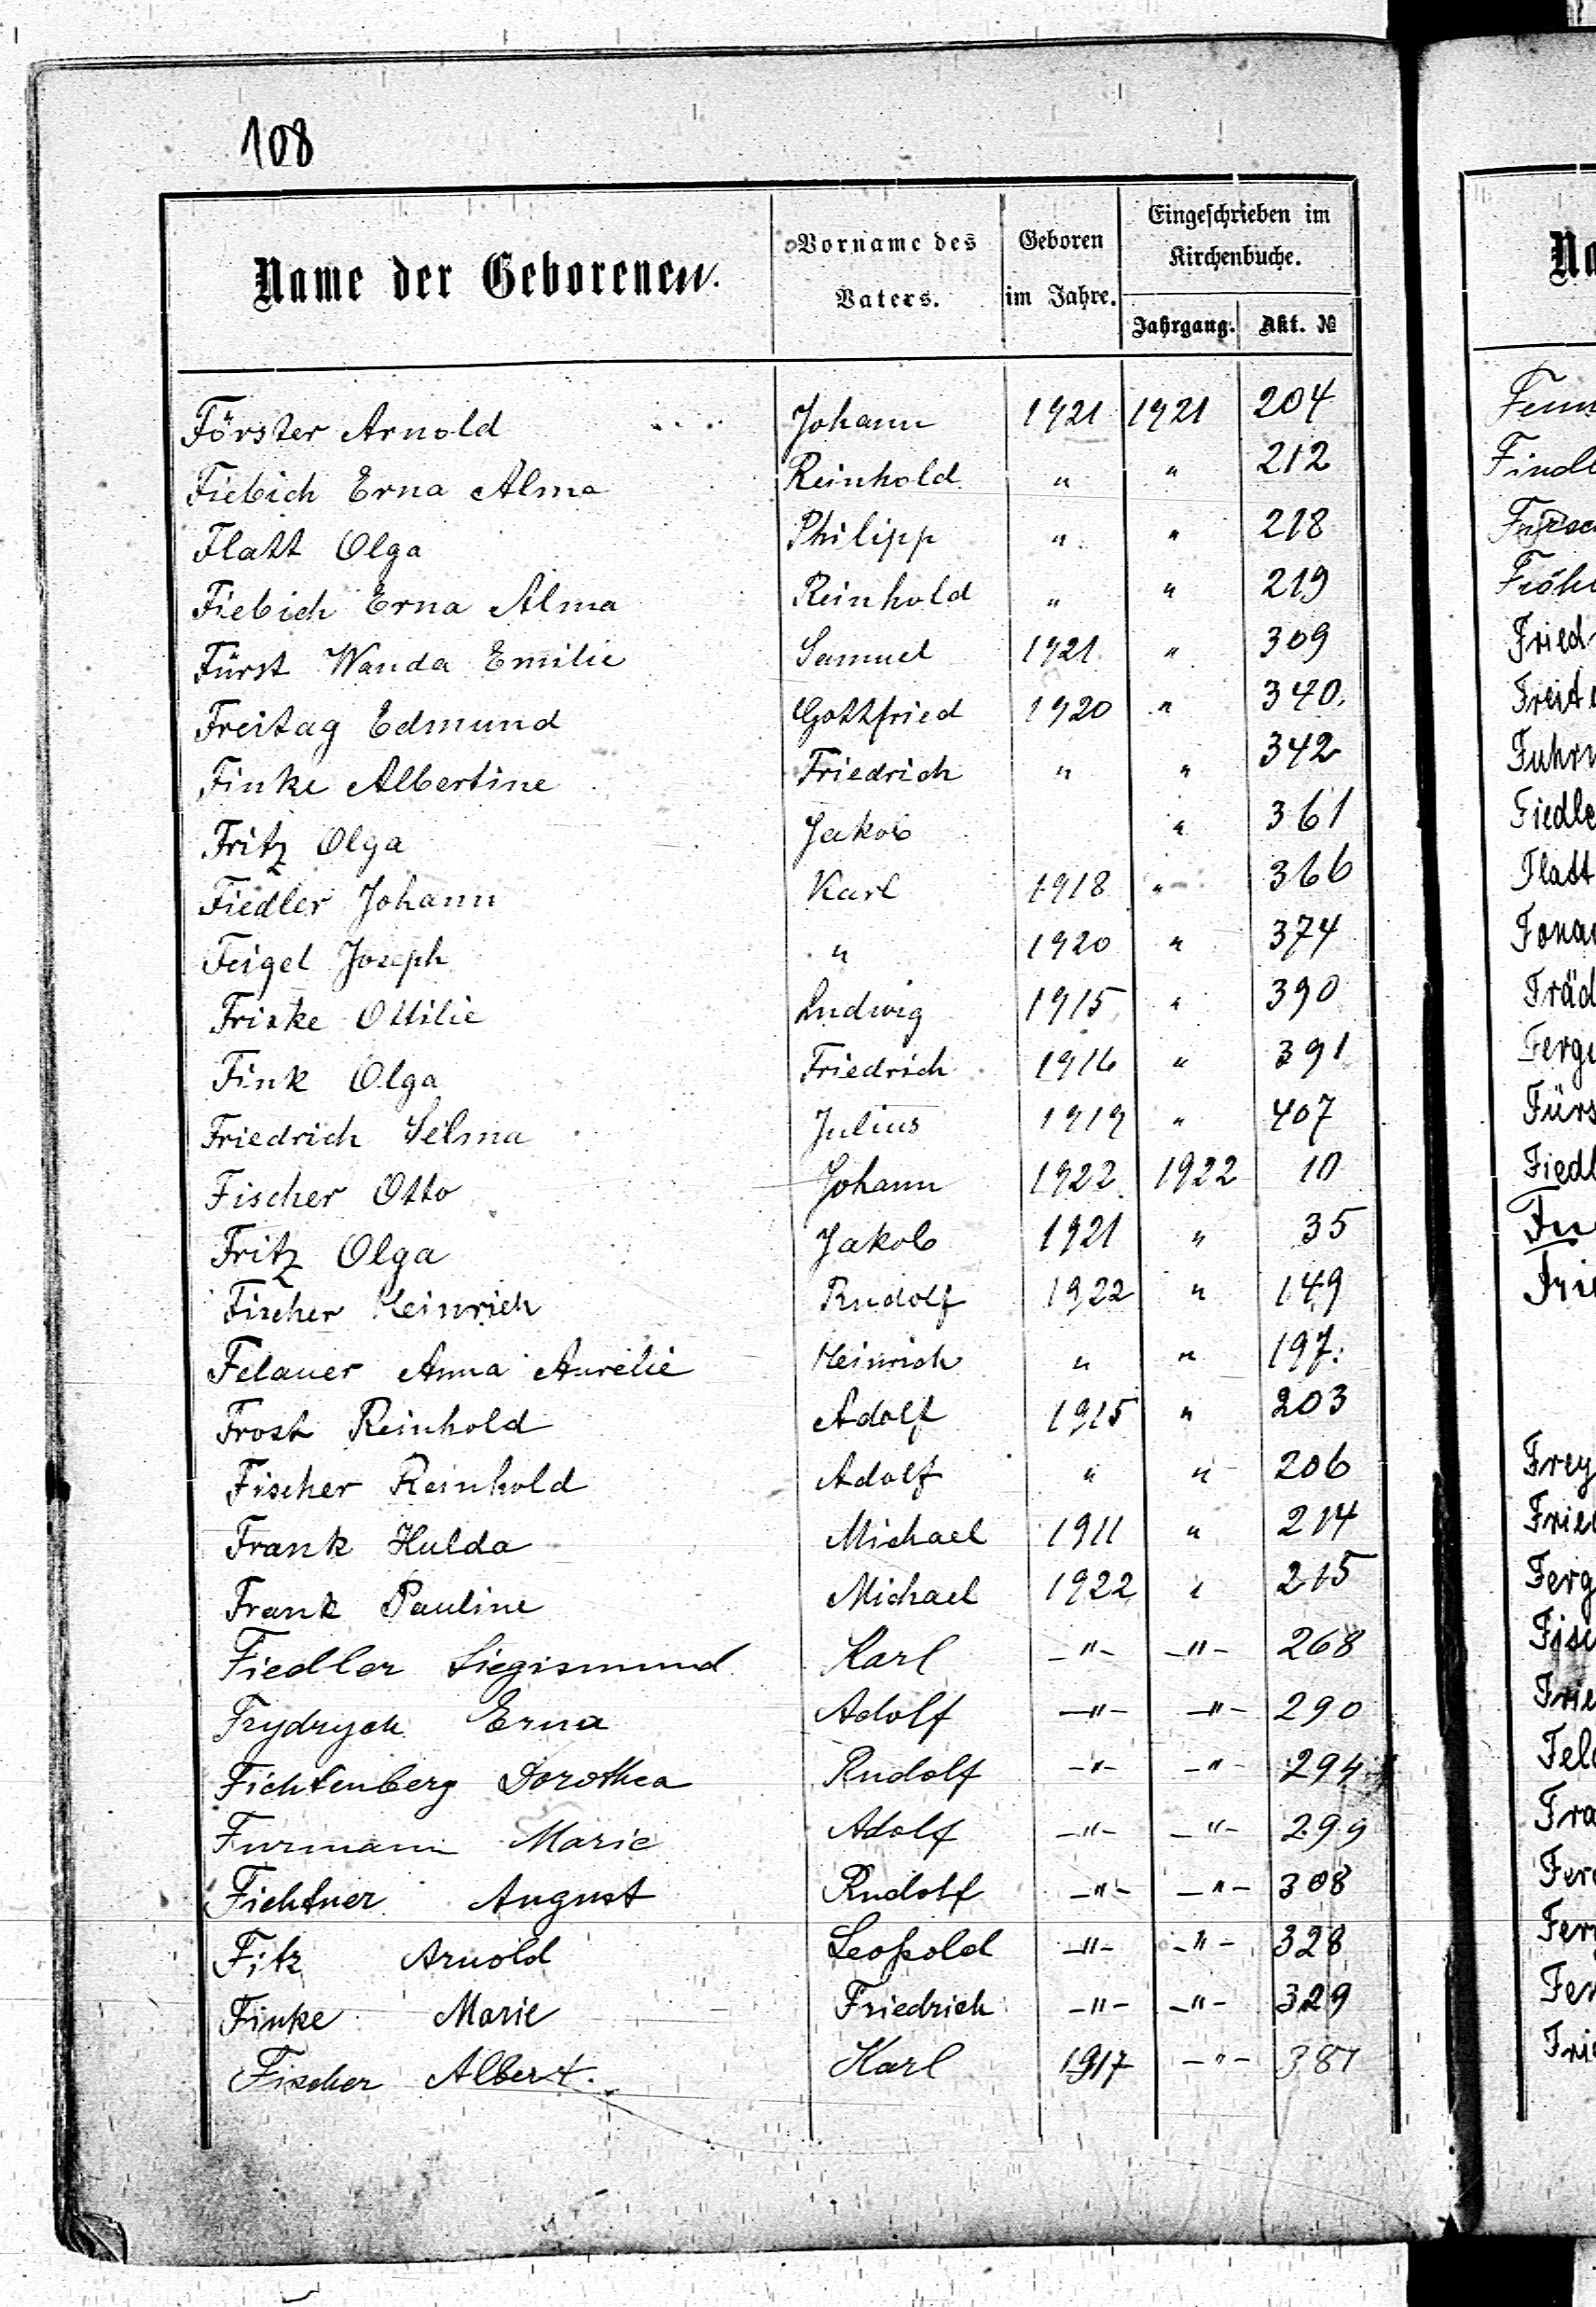 108
Name der Geborenen. Vorname des Vaters. Geboren im Jahre. Eingeschrieben im Kirchenbuche.
Jahrgang. Akt. №
Förster Arnold Johann 1921 1921 204
Fiebich Erna Alma Reinhold " " 212
Flatt Olga Philipp " " 218
Fiebich Erna Alma Reinhold " " 219
Fürst Wanda Emilie Samuel 1921 " 309
Freitag Edmund Gottfried 1920 " 340.
Finke Albertine Friedrich " " 342
Fritz Olga Jakob " 361
Fiedler Johann Karl 1918 " 366
Feigel Joseph " 1920 " 374
Friske Ottilie Ludwig 1915 " 390
Fink Olga Friedrich 1916 " 391
Friedrich Selma Julius 1919 " 407
Fischer Otto Johann 1922 1922 10
Fritz Olga Jakob 1921 " 35
Fischer Heinrich Rudolf 1922 " 149
Felauer Anna Aurelie Heinrich " " 197.
Frost Reinhold Adolf 1915 " 203
Fischer Reinhold Adolf " " 206
Frank Hulda Michael 1911 " 214
Frank Pauline Michael 1922 " 215
Fiedler Siegismund Karl -"- -"- 268
Frydrych Erna Adolf -"- -"- 290
Fichtenberg Dorothea Rudolf -"- -"- 294
Furmann Marie Adolf -"- -"- 299
Fichtner August Rudolf -"- -"- 308
Fitz Arnold Leopold -"- -"- 328
Finke Marie Friedrich -"- -"- 329
Fischer Albert. Karl 1917 -"- 387